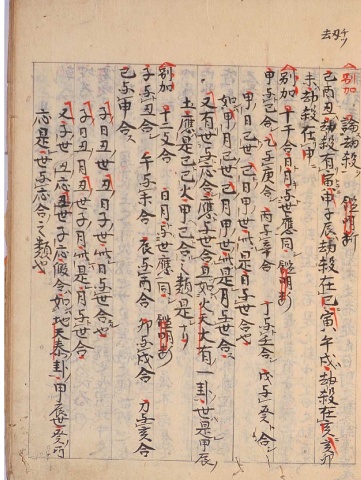 別加 論劫殺
巳酉丑劫殺有寅申子辰劫殺在巳寅午戌劫殺在亥亥卯
未劫殺在申
別加 十干合日月与世應同
甲与己合 乙与庚合 丙与辛合 丁与壬合 戊与癸合
甲日己世己日甲世此是日与世合也
如甲月己世己月甲世此是月与世合
又有世与應合應与世合且如火天大有一卦世是甲辰
土應是己巳火甲己合之類是
別加 十二支合 日月与世應同
子与丑合 午与未合 辰与酉合 卯与戌合 寅与亥合
巳与申合
子日丑世丑日子世此日与世合也
子月丑世丑月子世此是月与世合
又子世丑應丑世子應假令如地天泰卦甲辰世癸酉
應是世与應合之類也